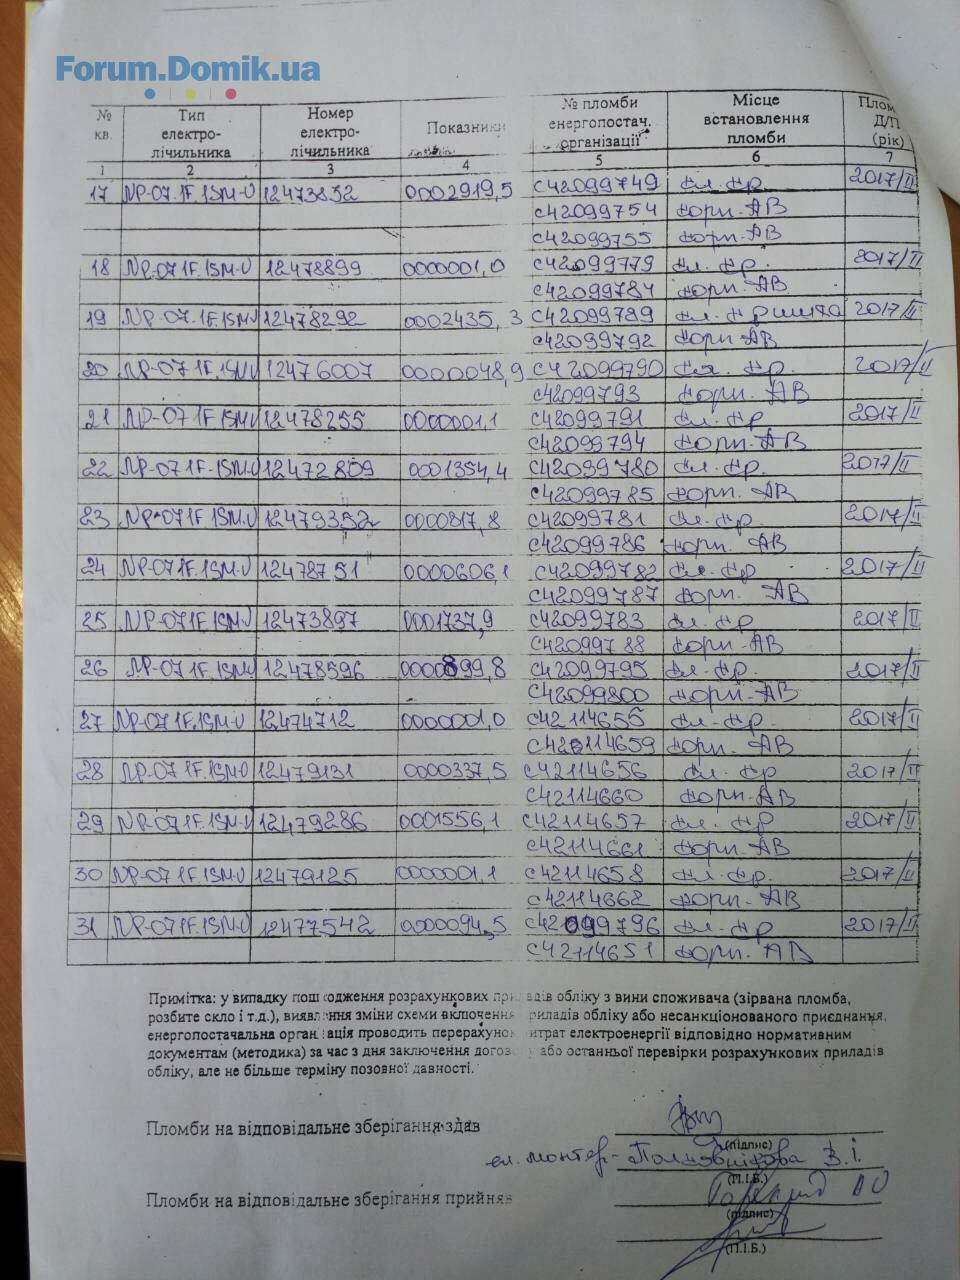 Forum.Domik.ua
№ кв. Тип електро-лічильника Номер електро-лічильника Показники № пломби енергопостач. організації Місце встановлення пломби Плом. Д/П (рік)
1 2 3 4 5 6 7
17 NP-07.1F.1SM-U 12473832 0002919,5 С42099749 кл. кр. 2017/II
С42099754 корп. АВ
С42099755 корп. АВ
18 NP-07 1F.1SM-U 12478899 0000001,0 С42099779 кл. кр. 2017/II
С42099784 корп. АВ
19 NP-07.1F.1SM-U 12478292 0002435,3 С42099789 кл. кришка 2017/II
С42099792 корп. АВ
20 NP-07 1F.1SM-U 12476007 0000048,9 С42099790 кл. кр. 2017/II
С42099793 корп. АВ
21 NP-07 1F.1SM-U 12478255 0000001,1 С42099791 кл. кр 2017/II
С42099794 корп. АВ
22 NP-07 1F.1SM-U 12472809 0001354,4 С42099780 кл. кр. 2017/II
С42099785 корп. АВ
23 NP-07 1F 1SM-U 12479352 0000817,8 С42099781 кл. кр. 2017/II
С42099786 корп. АВ
24 NP-07 1F.1SM-U 12478751 0000606,1 С42099782 кл. кр 2017/II
С42099787 корп. АВ
25 NP-07 1F.1SM-U 12473897 0001737,9 С42099783 кл. кр 2017/II
С42099788 корп. АВ
26 NP-07 1F.1SM-U 12478596 0000899,8 С42099795 кл. кр 2017/II
С42099800 корп. АВ
27 NP-07 1F.1SM-U 12474712 0000001,0 С42114655 кл. кр 2017/II
С42114659 корп. АВ
28 NP-07 1F.1SM-U 12479131 0000337,5 С42114656 кл. кр 2017/II
С42114660 корп. АВ
29 NP-07 1F.1SM-U 12479286 0001556,1 С42114657 кл. кр 2017/II
С42114661 корп. АВ
30 NP-07 1F.1SM-U 12479125 0000001,1 С42114658 кл. кр 2017/II
С42114662 корп. АВ
31 NP-07 1F.1SM-U 12477542 0000094,5 С42099796 кл. кр 2017/II
С42114651 корп. АВ
Примітка: у випадку пошкодження розрахункових приладів обліку з вини споживача (зірвана пломба,
розбите скло і т.д.), виявлення зміни схеми включення приладів обліку або несанкціонованого приєднання,
енергопостачальна організація проводить перерахунок витрат електроенергії відповідно нормативним
документам (методика) за час з дня заключення догов у або останньої перевірки розрахункових приладів
обліку, але не більше терміну позовної давності.
Пломби на відповідальне зберігання здав
(підпис)
ел. монтер - Полковнікова В.І.
(П.І.Б.)
Пломби на відповідальне зберігання прийняв
(підпис)
(П.І.Б.)